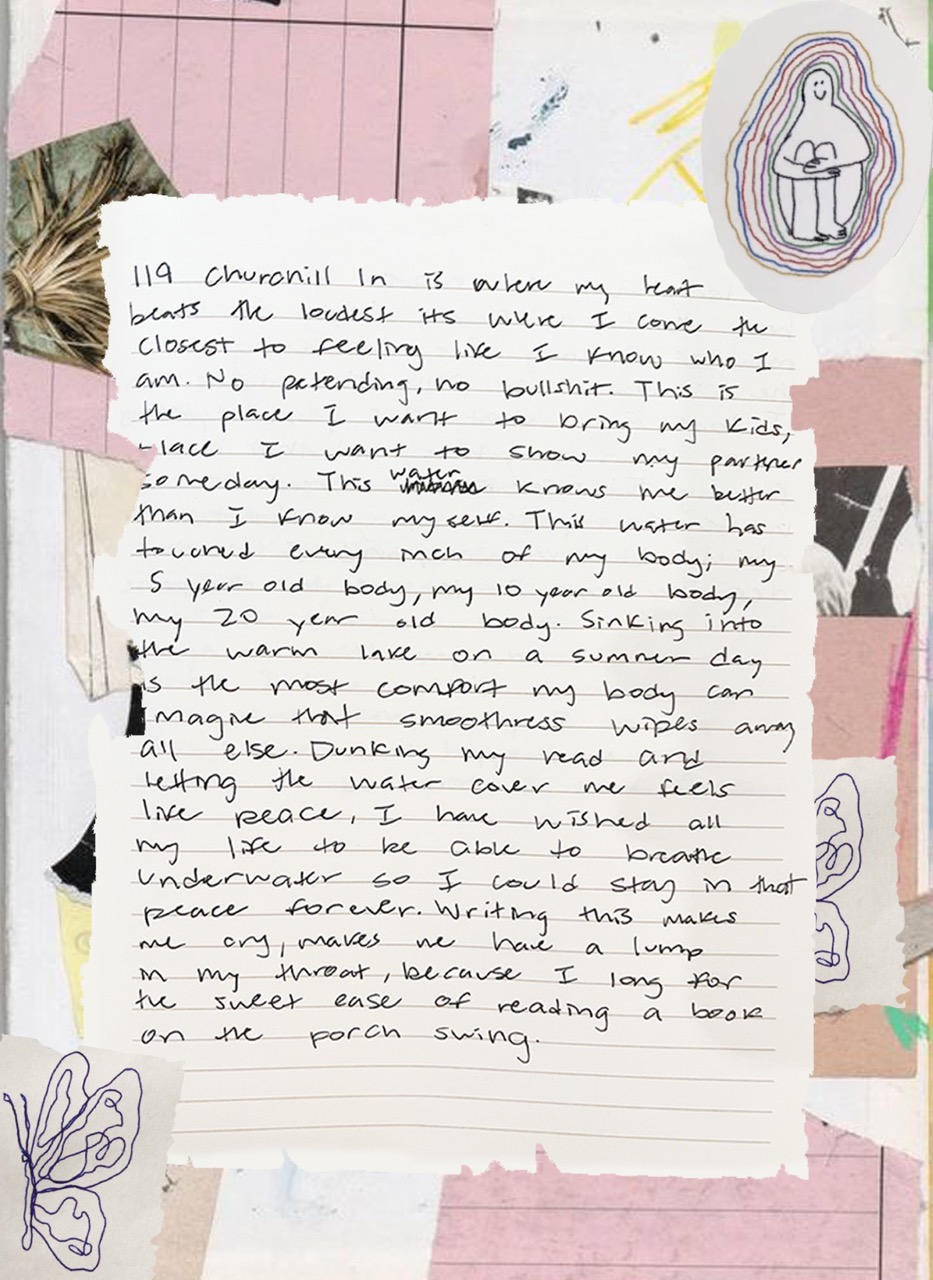 119 Churchill ln is where my heart
beats the loudest its where I come the
closest to feeling like I know who I
am. No pretending, no bullshit. This is
the place I want to bring my kids,
place I want to show my partner
someday. This water knows me better
than I know myself. This water has
touched every inch of my body; my
5 year old body, my 10 year old body,
my 20 year old body. Sinking into
the warm lake on a summer day
is the most comfort my body can
imagine that smoothness wipes away
all else. Dunking my head and
letting the water cover me feels
like peace, I have wished all
my life to be able to breathe
underwater so I could stay in that
peace forever. Writing this makes
me cry, makes me have a lump
in my throat, because I long for
the sweet ease of reading a book
on the porch swing.